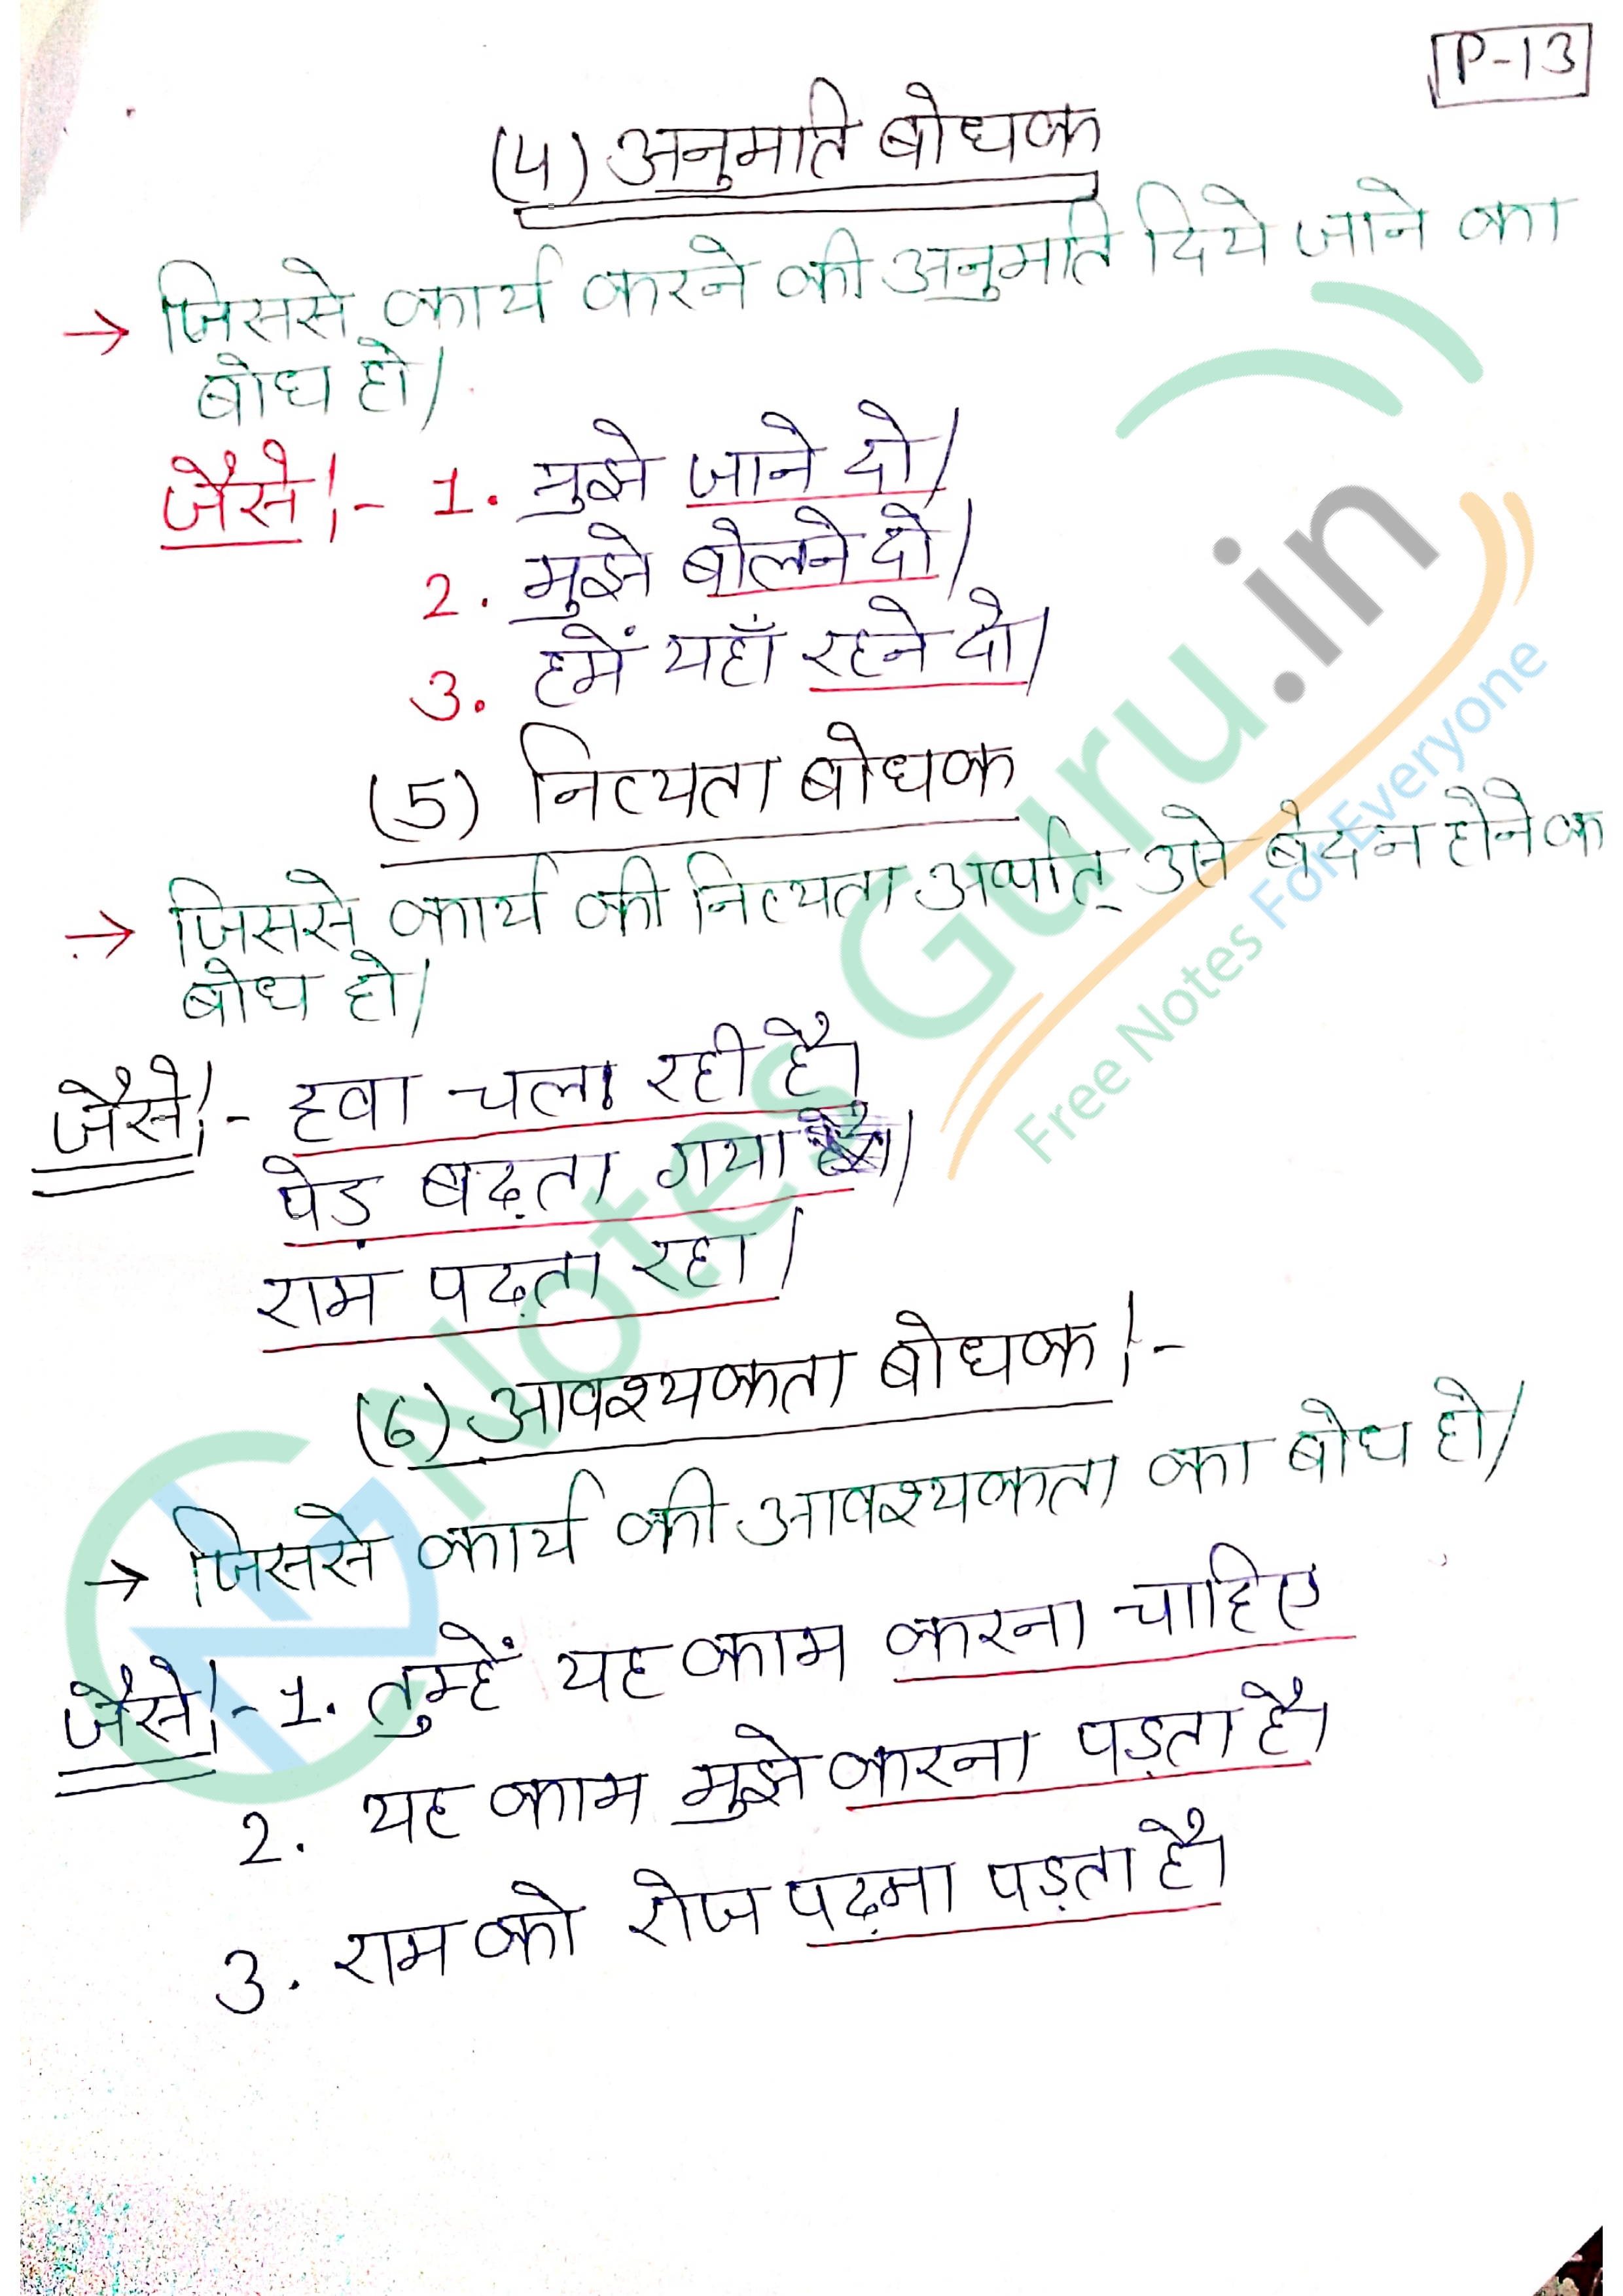 P-13
(4) अनुमति बोधक
→ जिससे कार्य करने की अनुमति दिये जाने का
बोध हो।
जैसे:- 1. मुझे जाने दो।
2. मुझे बोलने दो।
3. हमें यहाँ रहने दो।
(5) नित्यता बोधक
→ जिससे कार्य की नित्यता अर्थात् उसे बंद न होने का
बोध हो।
जैसे:- हवा चल रही है।
पेड़ बढ़ता गया।
राम पढ़ता रहा।
(6) आवश्यकता बोधक:-
→ जिससे कार्य की आवश्यकता का बोध हो।
जैसे:- 1. तुम्हें यह काम करना चाहिए
2. यह काम मुझे करना पड़ता है।
3. राम को रोज पढ़ना पड़ता है।
Notes Guru.in
Free Notes For Everyone